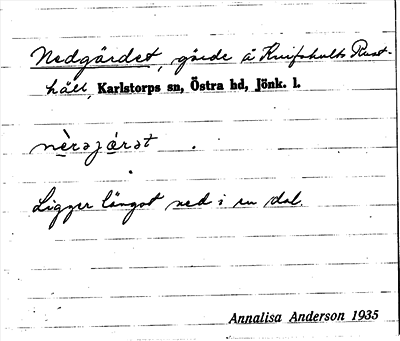 Nedgärdet, gärde å Knifshults Rust-
håll, Karlstorps sn, Östra hd, Jönk. l.
nèrəjǽrət
Ligger längst ned i en dal.
Annalisa Anderson 1935